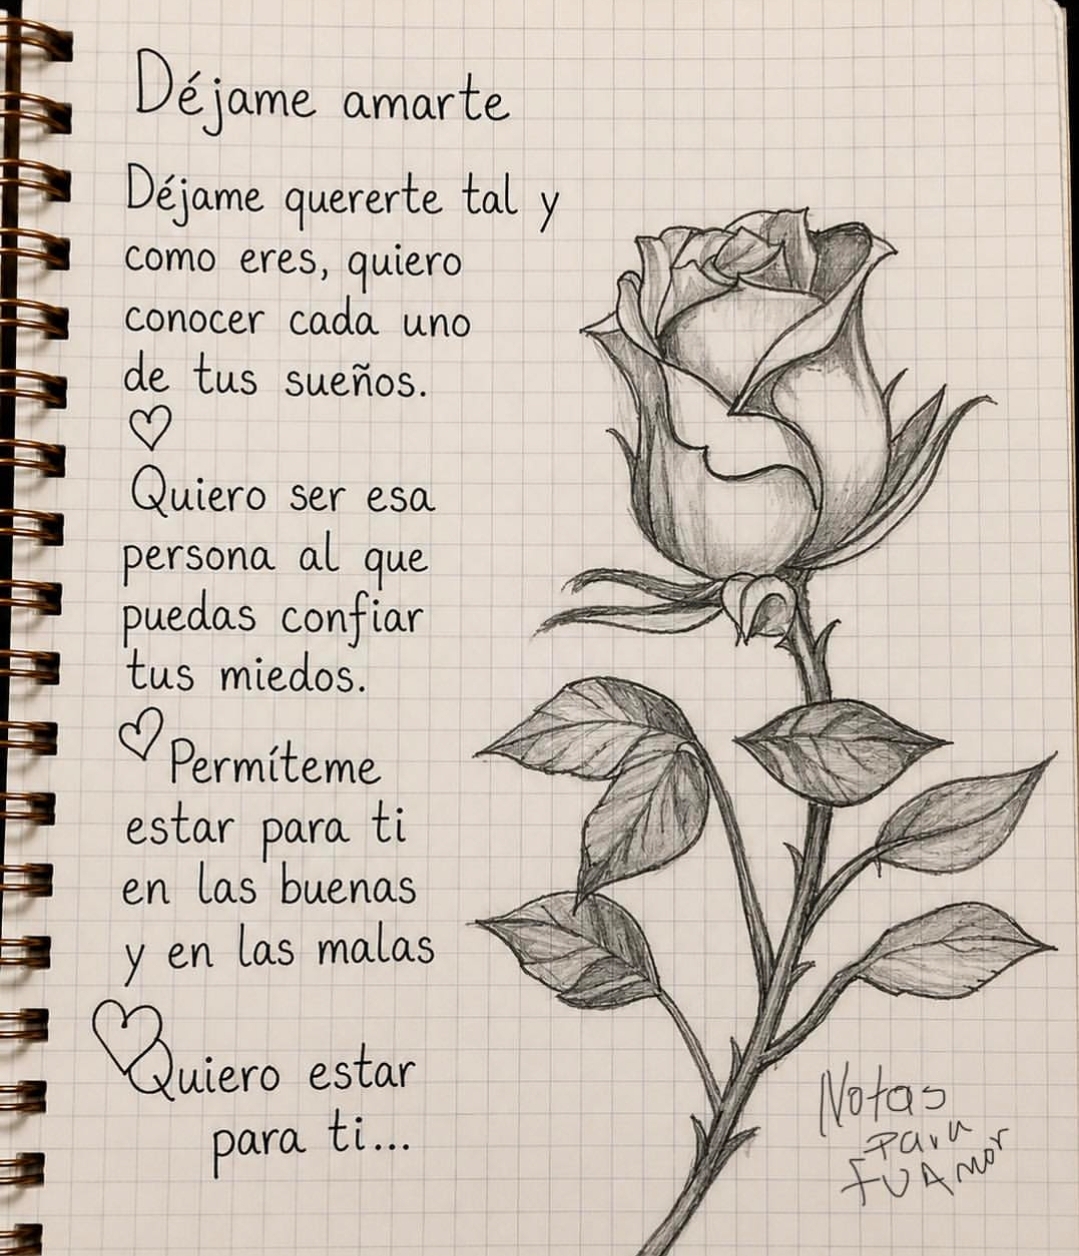 Déjame amarte
Déjame quererte tal y
como eres, quiero
conocer cada uno
de tus sueños.
Quiero ser esa
persona al que
puedas confiar
tus miedos.
Permíteme
estar para ti
en las buenas
y en las malas
Quiero estar
para ti...
Notas
para
tu Amor